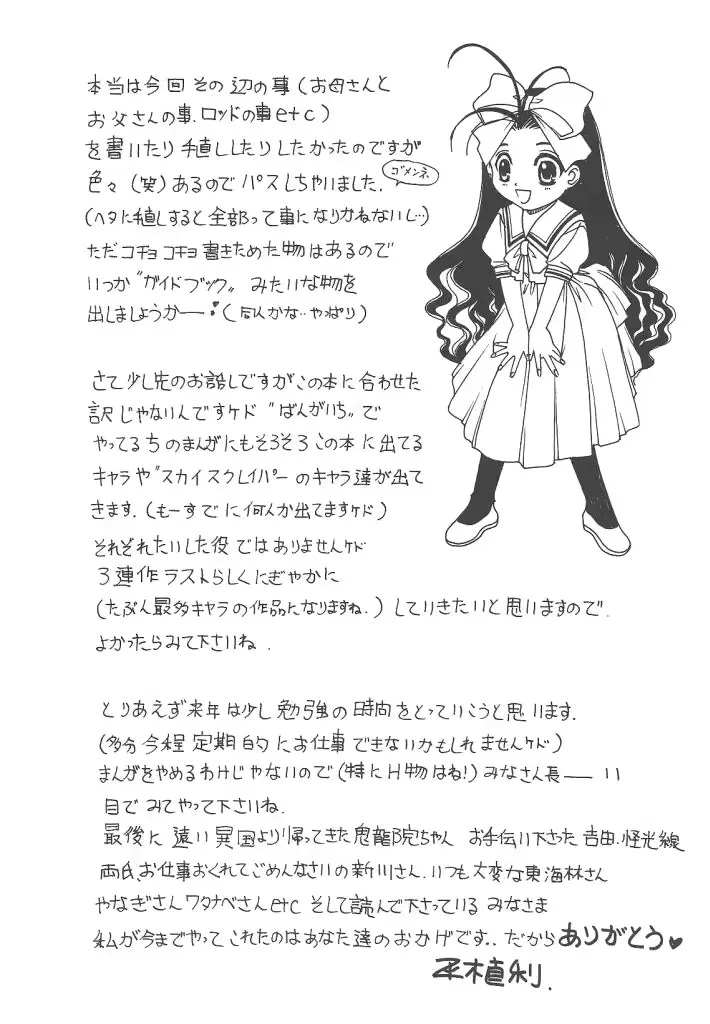 本当は今回その辺の事(お母さんと
お父さんの事.ロッドの事etc)
を書いたり描したりしたかったのですが
色々(笑)あるのでパスしちゃいました.
ゴメンネ
(ヘタに描しすると全部って事になりかねないし…)
ただコチョコチョ書きためた物はあるので
いつか“ガイドブック„みたいな物を
出しましょうかー・(同人かな…やっぱり)
さて少し先のお話しですがこの本に合わせた
訳じゃないんですケド“ばんがいち„で
やってるちのまんがにもそろそろこの本に出てる
キャラや“スカイスクレイパーのキャラ達が出て
きます.(もーすでに何人か出てますケド)
それぞれたいした役ではありませんケド
3連作ラストらしくにぎやかに
(たぶん最多キャラの作品になりますね.)していきたいと思いますので.
よかったらみて下さいね.
とりあえず来年は少し勉強の時間をとっていこうと思います.
(多分今程定期的にお仕事できないかもしれませんケド)
まんがをやめるわけじゃないので(特にH物はね!)みなさん長ーい
目でみてやって下さいね.
最後に遠い異国より帰ってきた鬼龍院ちゃん お手伝い下さった吉田.怪光線
両氏.お仕事おくれてごめんなさいの新川さん.いつも大変な東海林さん
やなぎさんワタナベさんetc そして読んで下さっているみなさま
私が今までやってこれたのはあなた達のおかげです..だからありがとう♥
平木直利.